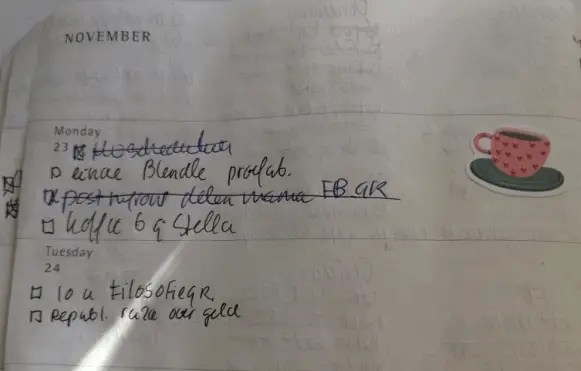 NOVEMBER
Monday
23
einde Blendle proefab.
delen mama FB GR
koffie 6 q Stella
Tuesday
24
10 u FilosofieGR
Republ. over geld